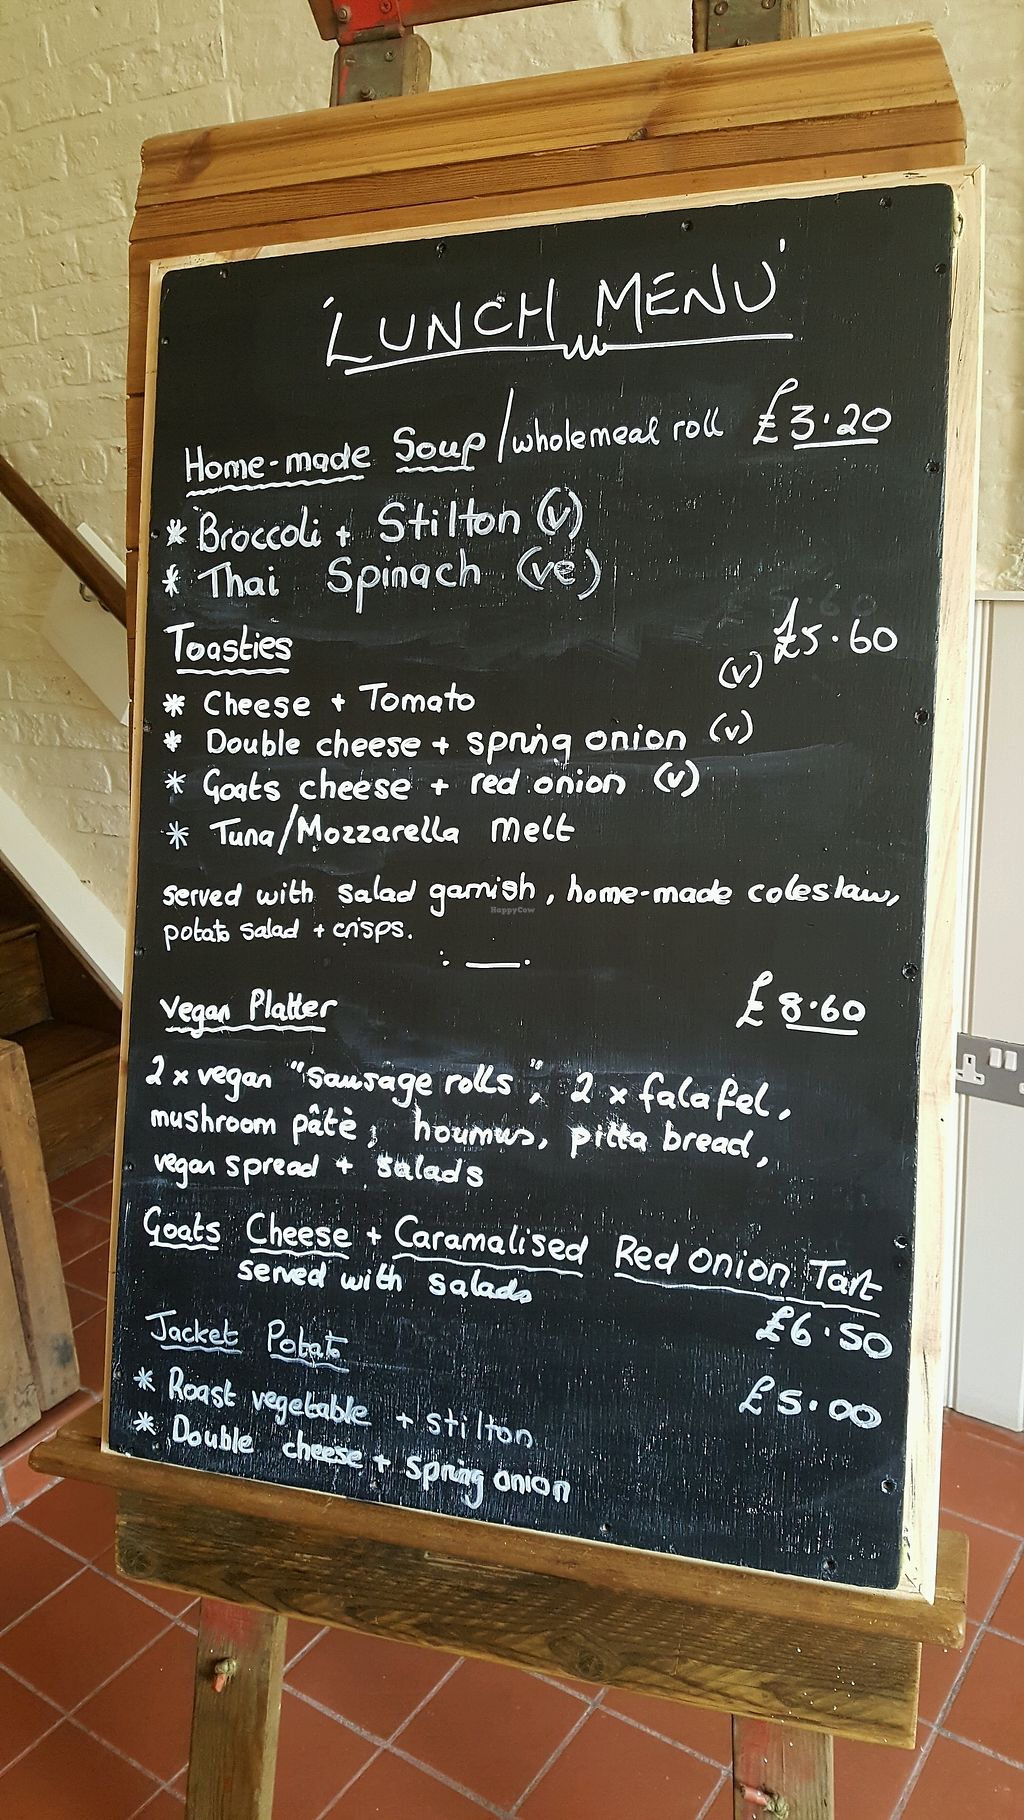 'LUNCH MENU'
Home-made Soup/wholemeal roll £3.20
* Broccoli + Stilton (v)
* Thai Spinach (ve)
Toasties £5.60
* Cheese + Tomato (v)
* Double cheese + spring onion (v)
* Goats cheese + red onion (v)
* Tuna/Mozzarella melt
served with salad garnish, home-made coleslaw,
potato salad + crisps.
HappyCow
Vegan Platter £8.60
2 x vegan "sausage rolls", 2 x falafel,
mushroom pâtè, houmus, pitta bread,
vegan spread + salads
Goats Cheese + Caramalised Red Onion Tart
served with salads £6.50
Jacket Potato £5.00
* Roast vegetable + stilton
* Double cheese + spring onion